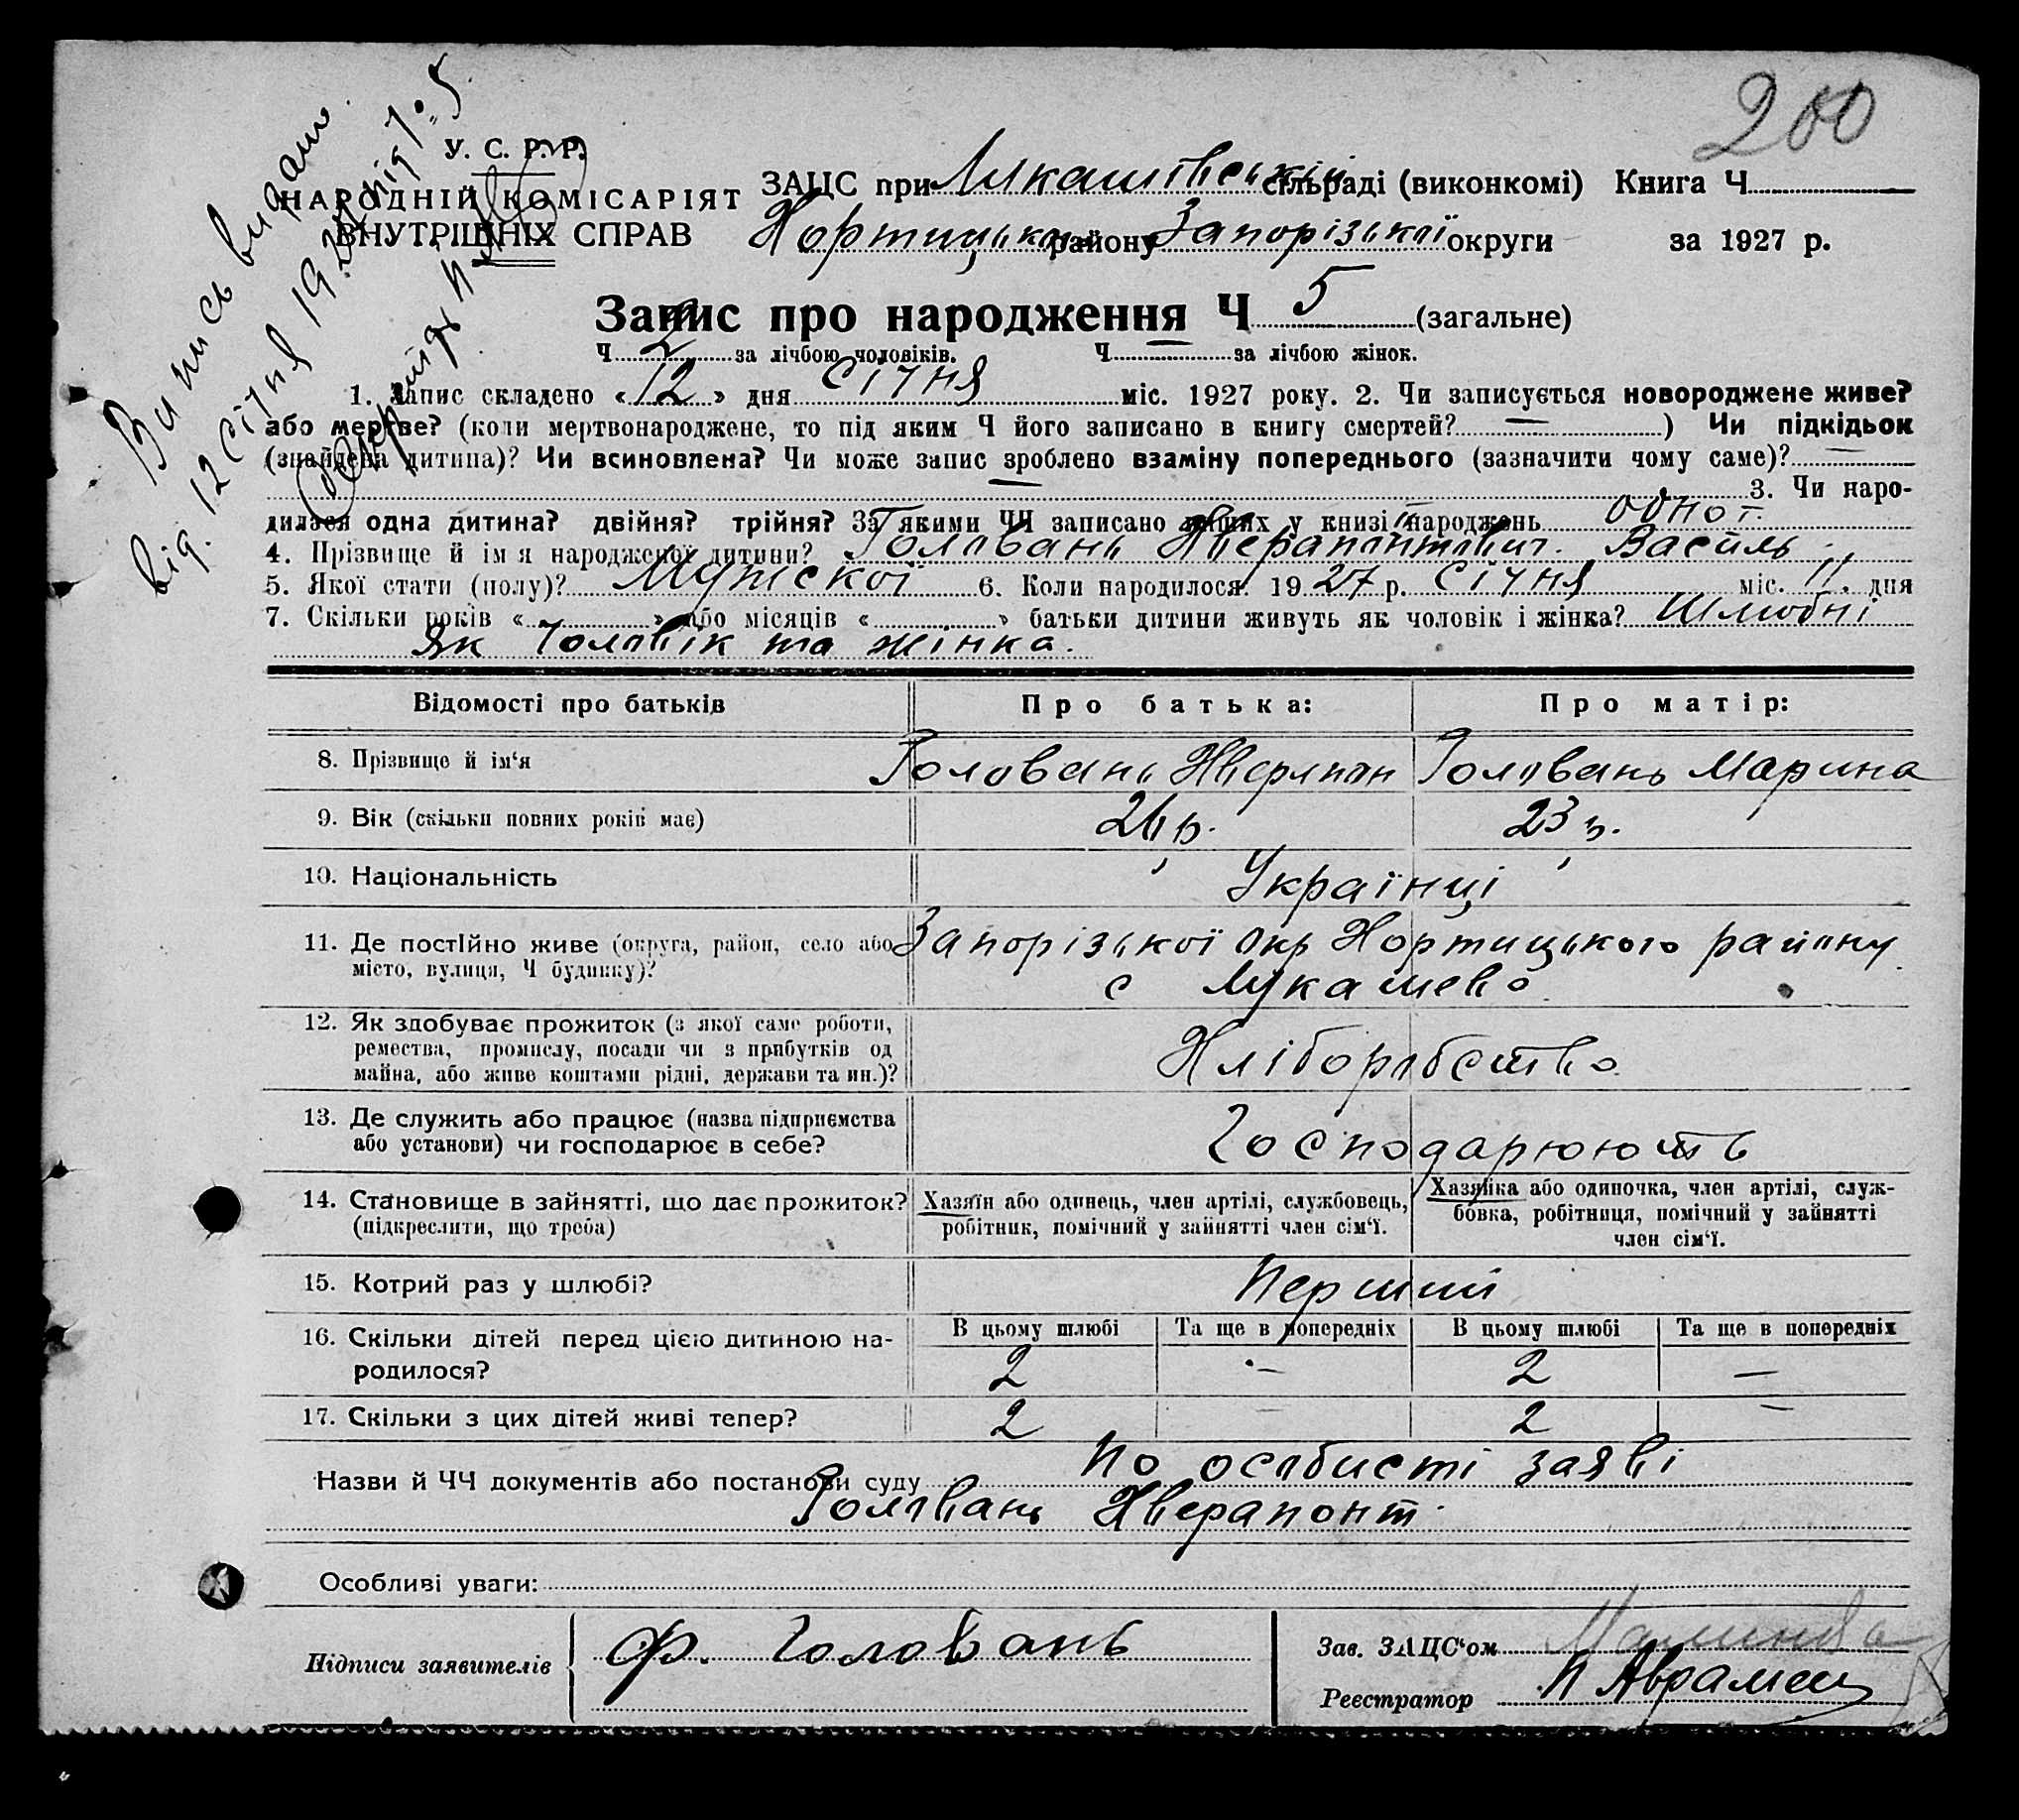 200
Випись видано
від. 12 січня 1927 під Ч: 5.
У. С. Р. Р.
НАРОДНІЙ КОМІСАРІЯТ
ВНУТРІШНІХ СПРАВ
ЗАЦС при Лукашівській сільраді (виконкомі) Книга Ч
Хортицьк району Запорізької округи за 1927 р.
Запис про народження Ч 5 (загальне)
Ч 2 за лічбою чоловіків. Ч — за лічбою жінок.
1. Запис складено «12» дня Січня міс. 1927 року. 2. Чи записується новороджене живе?
або мертве? (коли мертвонароджене, то під яким Ч його записано в книгу смертей? — ) Чи підкідьок
(знайдена дитина)? Чи всиновлена? Чи може запис зроблено взаміну попереднього (зазначити чому саме)? —
3. Чи наро-
дилася одна дитина? двійня? трійня? За якими ЧЧ записано інших у книзі народжень одно
4. Прізвище й ім я народженої дитини? Головань Хверапонтович. Василь.
5. Якої стати (полу)? Мужскої 6. Коли народилося? 1927 р. Січня міс. 11. дня
7. Скільки років « » або місяців « » батьки дитини живуть як чоловік і жінка? Шлюбні
як Чоловік та жінка.
Відомості про батьків Про батька: Про матір:
8. Прізвище й ім‘я Головань Хверапон Головань Марина
9. Вік (скільки повних років має) 26 р. 23 р.
10. Національність Українці
11. Де постійно живе (округа, район, село або Запорізької Окр Хортицького району
місто, вулиця, Ч будинку)? с Лукашево
12. Як здобуває прожиток (з якої саме роботи,
ремества, промислу, посади чи з прибутків од
майна, або живе коштами рідні, держави та ин.)? Хліборобство
13. Де служить або працює (назва підприємства
або установи) чи господарює в себе? Господарюють
14. Становище в зайнятті, що дає прожиток? Хазяїн або одинець, член артілі, службовець, Хазяйка або одиночка, член артілі, служ-
(підкреслити, що треба) робітник, помічний у зайнятті член сім‘ї. бовка, робітниця, помічний у зайнятті
член сім‘ї.
15. Котрий раз у шлюбі? Перший
16. Скільки дітей перед цією дитиною на- В цьому шлюбі Та ще в попередніх В цьому шлюбі Та ще в попередніх
родилося? 2 — 2 —
17. Скільки з цих дітей живі тепер? 2 — 2 —
Назви й ЧЧ документів або постанови суду по особисті заяві
Головань Хверапонт.
Особливі уваги:
Підписи заявителів Ф. Головань
Зав. ЗАЦС‘ом
Реєстратор П Аврамец